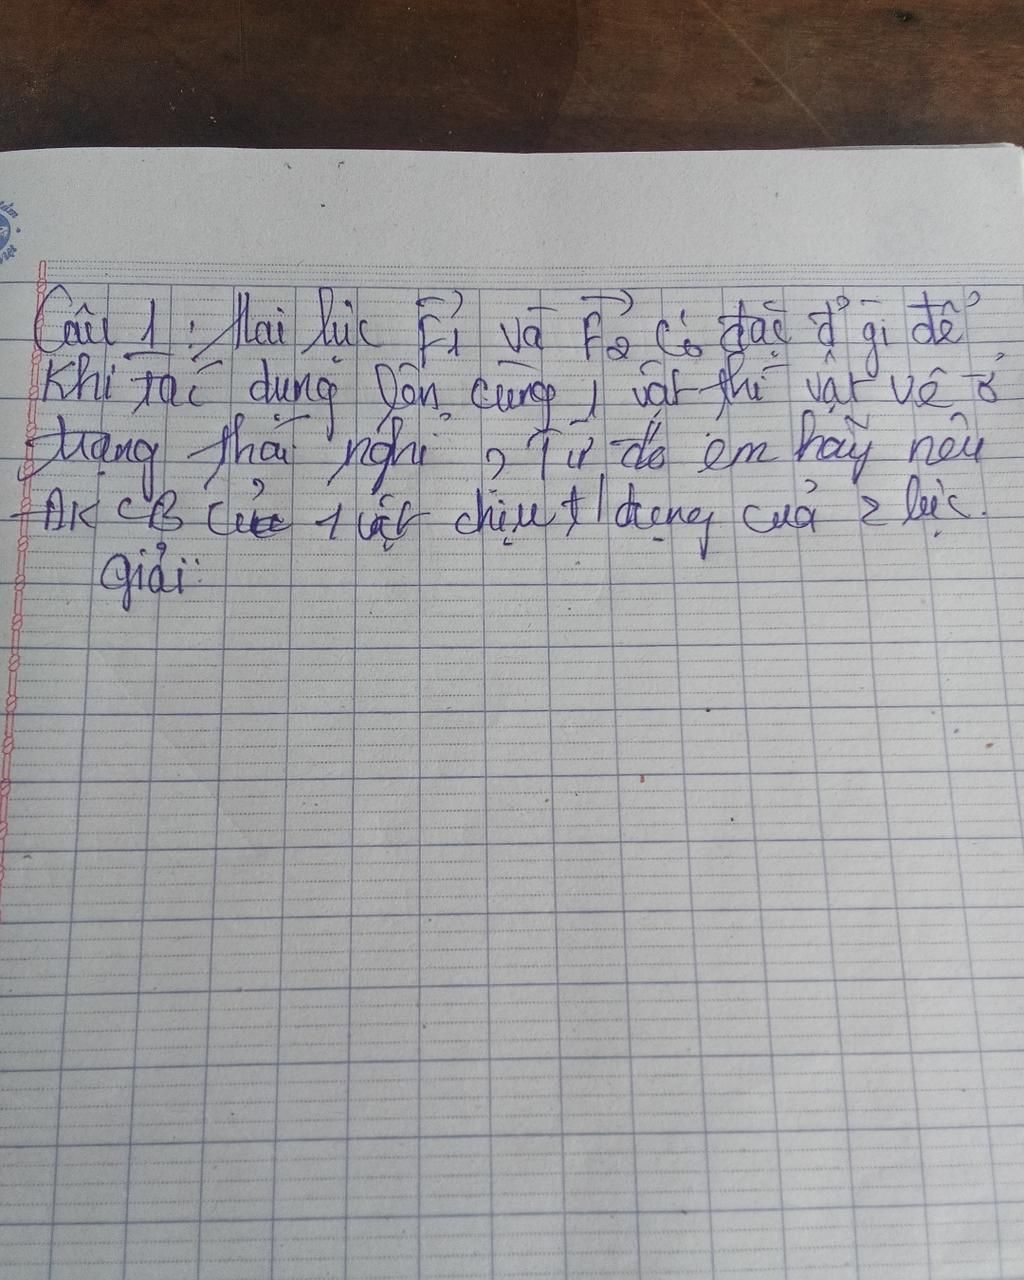 Câu 1 : Hai lực F1 và F2 có đặc đ² gì để
khi tác dụng lên cùng 1 vật thì vật về ở
trạng thái nghỉ ? Từ đó em hãy nêu
ĐK CB của 1 vật chịu t/dụng của 2 lực.
Giải: